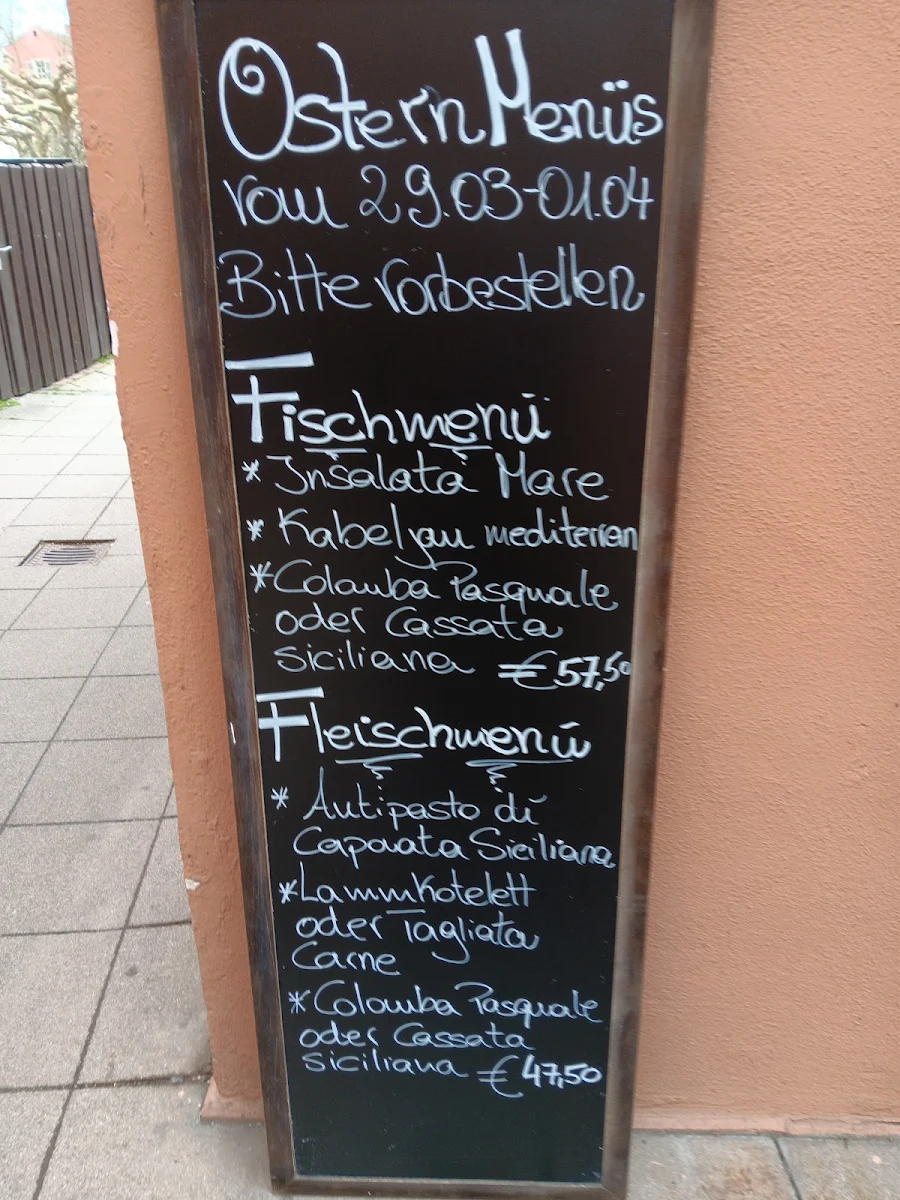 Ostern Menüs
vom 29.03-01.04
Bitte vorbestellen
Fischmenü
* Insalata Mare
* Kabeljau mediterran
* Colomba Pasquale
oder Cassata
Siciliana €57,50
Fleischmenü
* Antipasto di
Caponata Siciliana
* Lammkotelett
oder Tagliata
Carne
* Colomba Pasquale
oder Cassata
Siciliana € 47,50